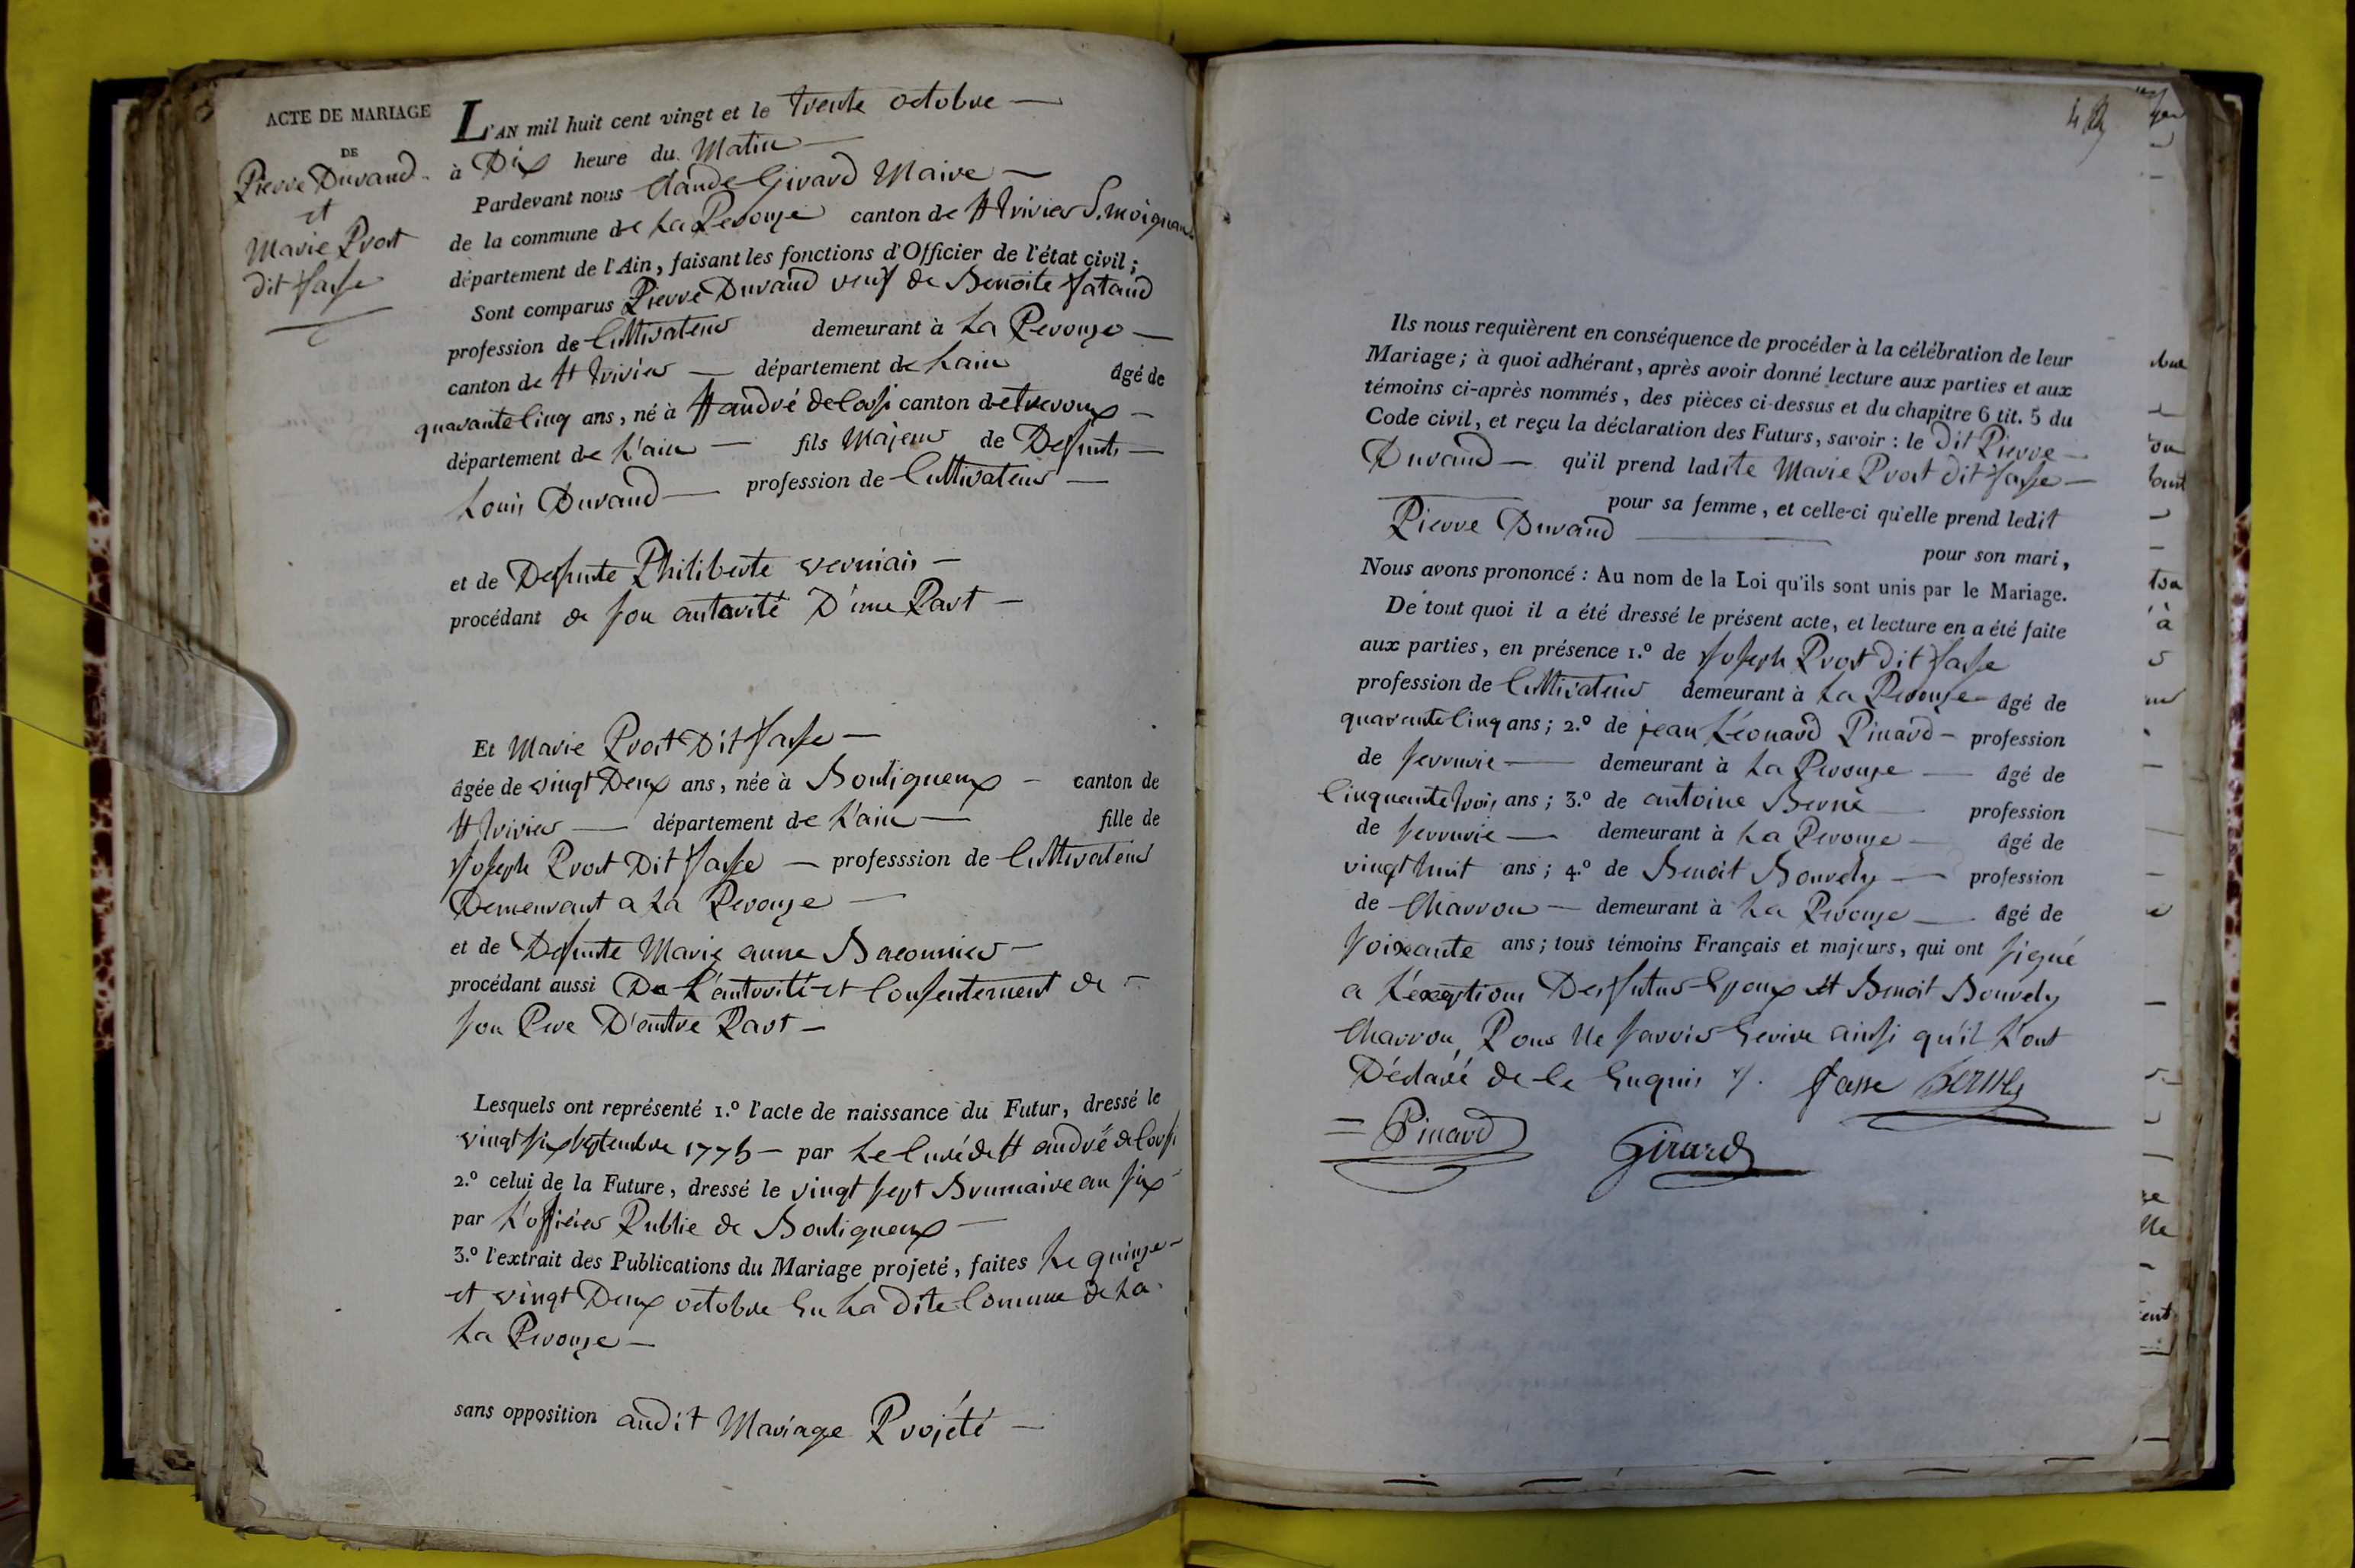 ACTE DE MARIAGE
DE
Pierre Durand
et
Marie Prost
dit fasse
L'AN mil huit cent vingt et le trente octobre
à Dix heure du Matin
Pardevant nous Claude Girard Maire
de la commune de La Perouze canton de St trivier S. moignans
département de l'Ain, faisant les fonctions d'Officier de l'état civil;
Sont comparus Pierre Durand veuf de Benoite fatand
profession de Cultivateur demeurant à La Perouze
canton de St trivier département de Lain âgé de
quarante Cinq ans, né à St andré de Corsi canton de trevoux
département de L'ain fils Majeur de Defunts
Louis Durand profession de Cultivateur
et de Defunte Philiberte verniais
procédant de son autorité D'une Part
Et Marie Prost Dit fasse
âgée de vingt Deux ans, née à Bouligneux canton de
St trivier département de L'ain fille de
Joseph Prost Dit fasse professsion de Cultivateur
Demeurant a La Perouze
et de Defunte Marie anne Baconnier
procédant aussi De L'autorité et Consentement de
son Pere D'autre Part
Lesquels ont représenté 1.º l'acte de naissance du Futur, dressé le
vingt six septembre 1775 par Le Curé de St andré de Corsi
2.º celui de la Future, dressé le vingt sept Brumaire an six
par L'officier Public de Bouligneux
3.º l'extrait des Publications du Mariage projeté, faites Le quinze
et vingt Deux octobre En La dite Commune de La
La Perouze
sans opposition audit Mariage Projété
Ils nous requièrent en conséquence de procéder à la célébration de leur
Mariage; à quoi adhérant, après avoir donné lecture aux parties et aux
témoins ci-après nommés, des pièces ci-dessus et du chapitre 6 tit. 5 du
Code civil, et reçu la déclaration des Futurs, savoir: le dit Pierre
Durand qu'il prend ladite Marie Prost dit fasse
pour sa femme, et celle-ci qu'elle prend ledit
Pierre Durand
pour son mari,
Nous avons prononcé: Au nom de la Loi qu'ils sont unis par le Mariage.
De tout quoi il a été dressé le présent acte, et lecture en a été faite
aux parties, en présence 1.º de Joseph Prost dit fasse
profession de Cultivateur demeurant à La Perouze âgé de
quarante Cinq ans; 2.º de jean Léonard Pinard profession
de serrurie demeurant à La Perouze âgé de
Cinquante trois ans; 3.º de antoine Berné profession
de serrurie demeurant à La Perouze âgé de
vingt huit ans; 4.º de Benoit Bouvely profession
de Charron demeurant à La Perouze âgé de
soixante ans; tous témoins Français et majeurs, qui ont signé
a L'exeptions Des futurs Epoux et Benoit Bouvely
Charron, Pour Ne savoir Ecrire ainsi qu'il L'ont
Déclaré de ce Enquis
fasse
Pinard Girard